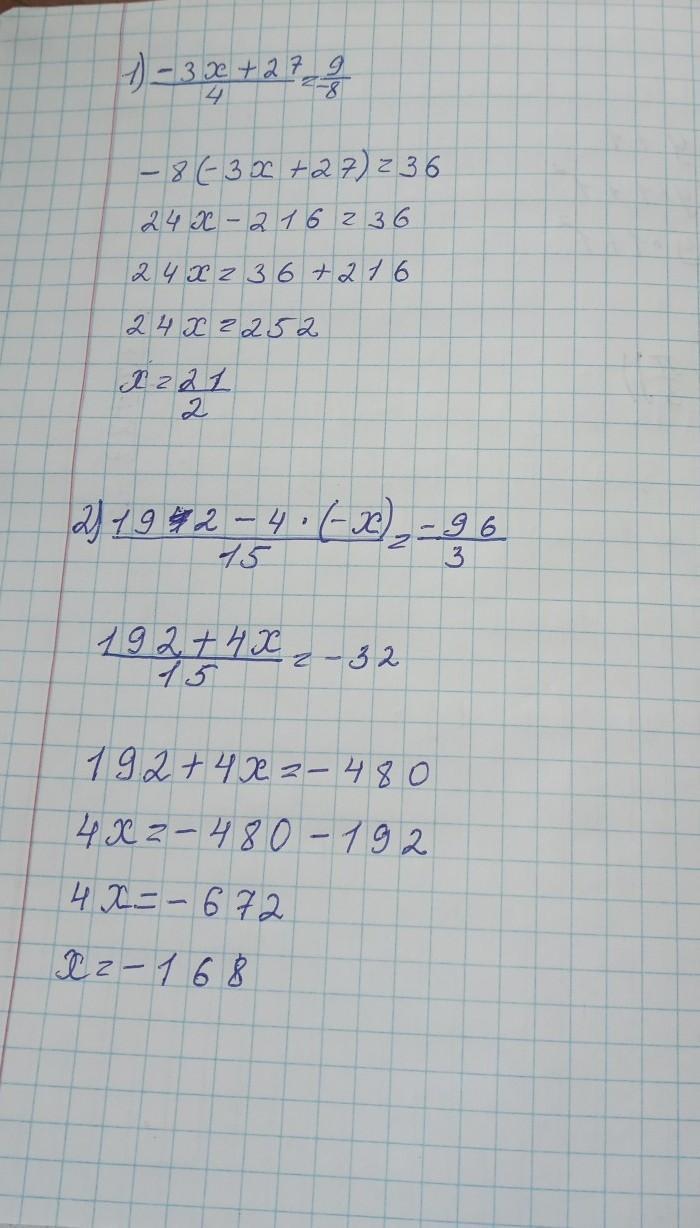 1) (-3x+27)/4 = 9/-8
-8(-3x+27)=36
24x-216=36
24x=36+216
24x=252
x=21/2
2) (192-4·(-x))/15 = -96/3
(192+4x)/15 = -32
192+4x=-480
4x=-480-192
4x=-672
x=-168